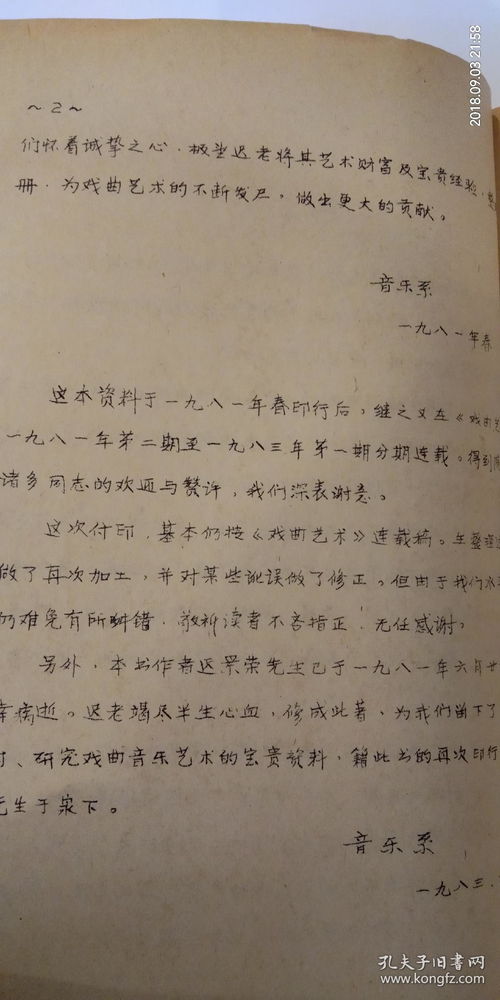 2018.09.03 21:58
~2~
们怀着诚挚之心.极望迟老将其艺术财富及宝贵经验.
册.为戏曲艺术的不断发尸,做出更大的贡献。
音乐系
一九八一年春
这本资料于一九八一年春印行后,继之又在《戏曲
一九八一年第二期至一九八三年第一期分期连载。得到
诸多同志的欢迎与赞许,我们深表谢意。
这次付印.基本仍按《戏曲艺术》连载稿。在整理
做了再次加工,并对某些讹误做了修正。但由于我们水
仍难免有所舛错.敬祈读者不吝指正.无任感谢,
另外.本书作者迟景荣先生已于一九八一年六月廿
幸病逝。迟老竭尽半生心血,修成此著,为我们留下了
、研究戏曲音乐艺术的宝贵资料,籍此书的再次印行
先生于泉下。
音乐系
一九八三.
孔夫子旧书网
www.kongfz.com